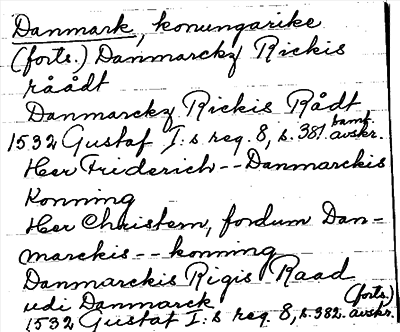 Danmark, konungarike
(forts.) Danmarckz Rickis
råådt
Danmarckz Rickis Rådt
1532 Gustaf I:s reg. 8, s. 381. samt. avskr.
Her Friderich -- Danmarckis
Konning
Her Christern, fordum Dan-
marckis -- konning
Danmarckis Rigis Raad
udi Danmarck (forts.)
1532 Gustaf I:s reg 8, s. 382. avskr.